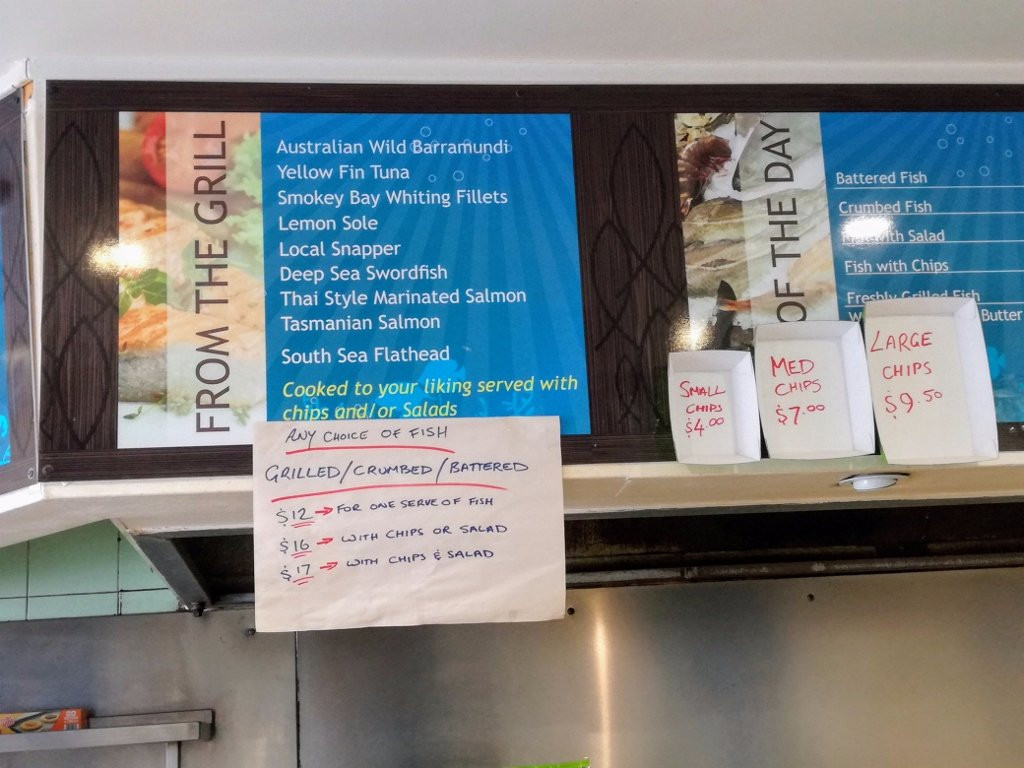 FROM THE GRILL
Australian Wild Barramundi
Yellow Fin Tuna
Smokey Bay Whiting Fillets
Lemon Sole
Local Snapper
Deep Sea Swordfish
Thai Style Marinated Salmon
Tasmanian Salmon
South Sea Flathead
Cooked to your liking served with
chips and/or Salads
ANY CHOICE OF FISH
GRILLED/CRUMBED/BATTERED
$12 → FOR ONE SERVE OF FISH
$16 → WITH CHIPS OR SALAD
$17 → WITH CHIPS & SALAD
OF THE DAY
Battered Fish
Crumbed Fish
with Salad
Fish with Chips
Freshly Grilled Fish
Butter
SMALL
CHIPS
$4.00
MED
CHIPS
$7.00
LARGE
CHIPS
$9.50